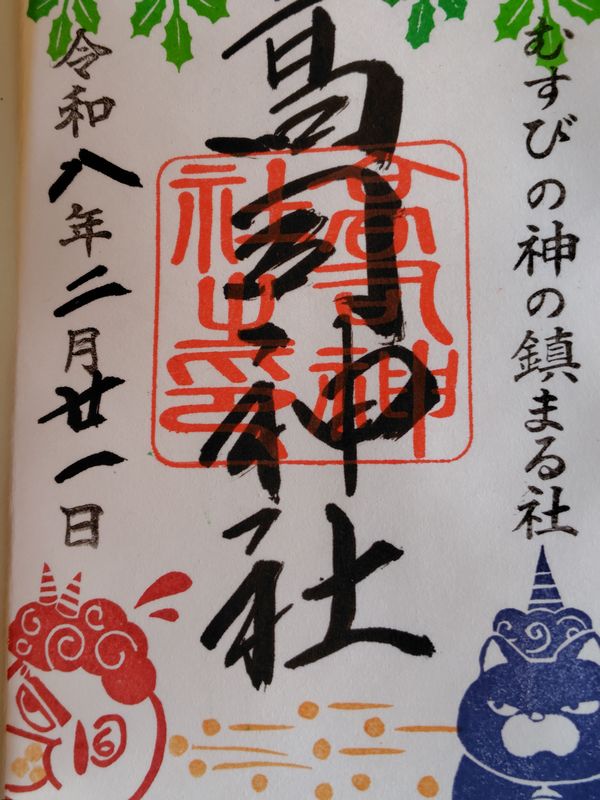 むすびの神の鎮まる社
高司神社
高司神
社之印
令和八年二月廿一日